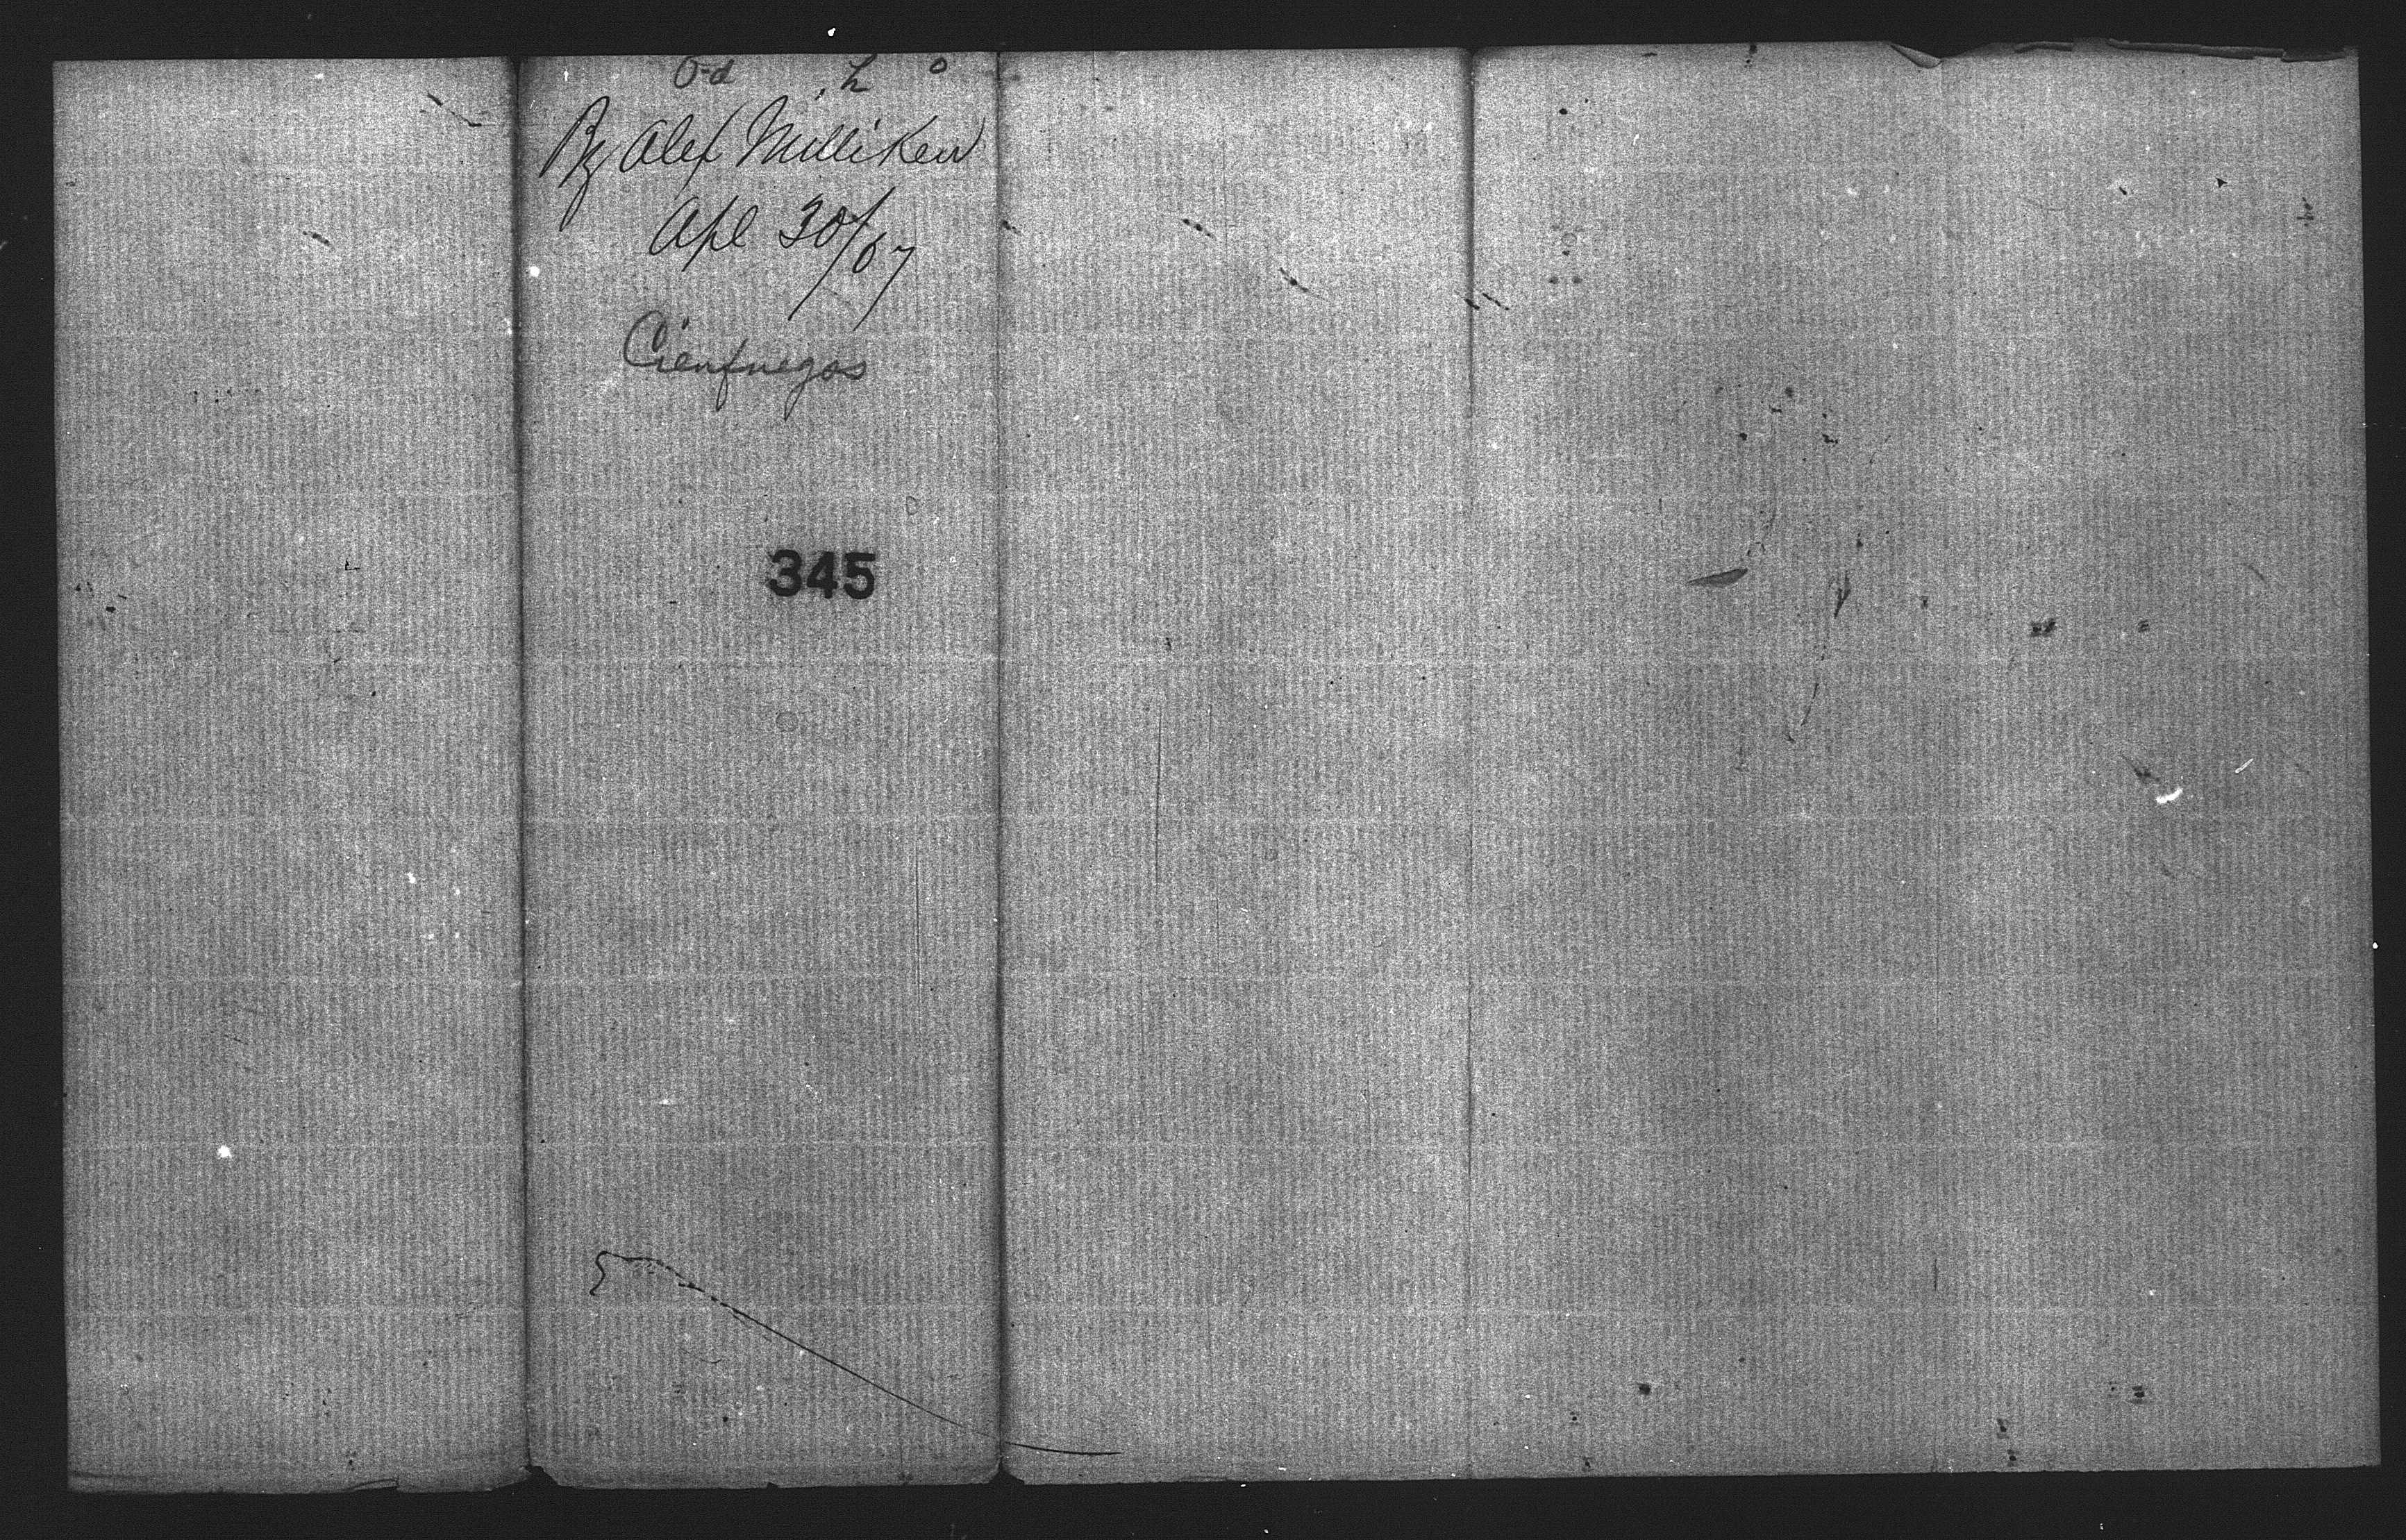 By Alex Milliken
Apl 30/07
Cienfuegos
345